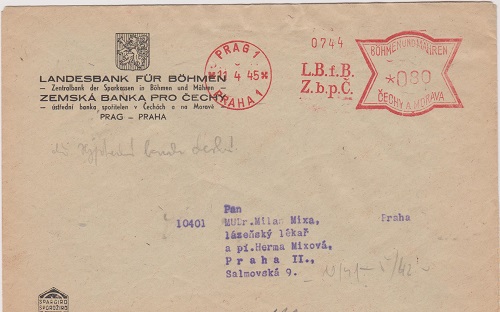 LANDESBANK FÜR BÖHMEN
— Zentralbank der Sparkassen in Böhmen und Mähren —
ZEMSKÁ BANKA PRO ČECHY
— ústřední banka spořitelen v Čechách a na Moravě —
PRAG - PRAHA
PRAG 1
11 4 45
PRAHA 1
0744
L.B.f.B.
Z.b.p.Č.
BÖHMEN UND MÄHREN
*080
ČECHY A MORAVA
Pan
10401 MUDr.Milan Mixa, Praha
lázeňský lékař
a pí.Herma Mixová,
Praha II.,
Salmovská 9.
SPARGIRO
SPOROŽIRO